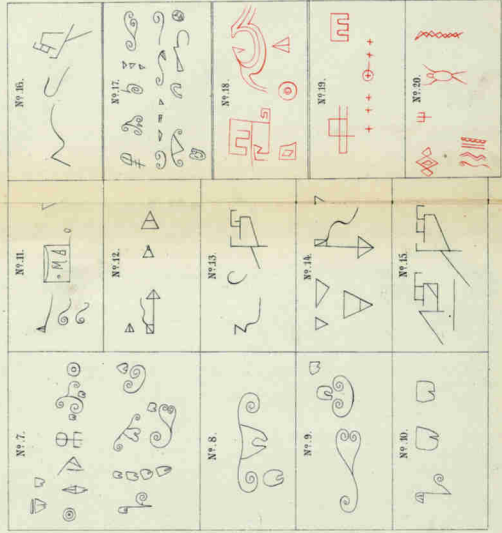 Nº. 7.
Nº. 8.
Nº. 9.
Nº. 10.
Nº. 11.
Nº. 12.
Nº. 13.
Nº. 14.
Nº. 15.
Nº. 16.
Nº. 17.
Nº. 18.
Nº. 19.
Nº. 20.